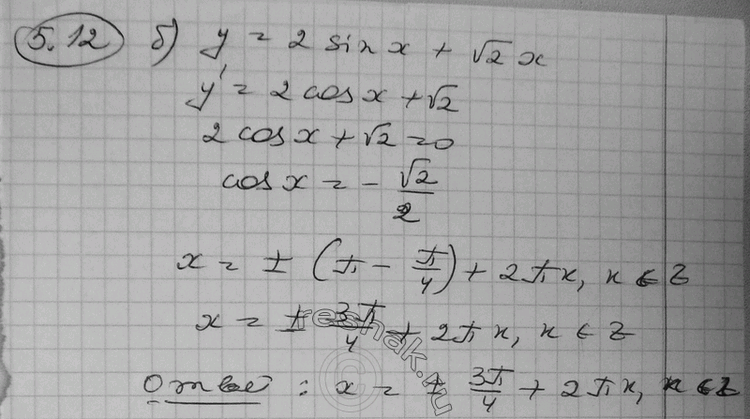 5.12 б) y = 2 sin x + √2 x
y' = 2 cos x + √2
2 cos x + √2 = 0
cos x = - √2/2
x = ± (π - π/4) + 2πn, n ∈ Z
x = ± 3π/4 + 2πn, n ∈ Z
Ответ : x = ± 3π/4 + 2πn, n ∈ Z
reshak.ru